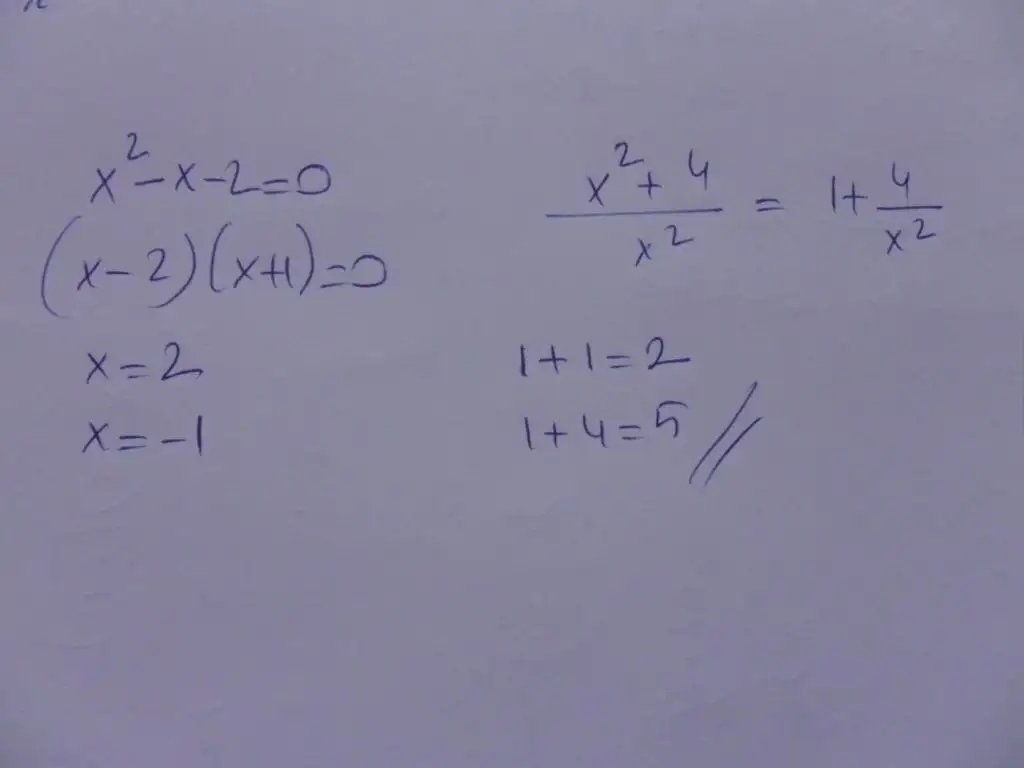 x² - x - 2 = 0
(x - 2)(x + 1) = 0
x = 2
x = -1
x² + 4 / x² = 1 + 4 / x²
1 + 1 = 2
1 + 4 = 5 //